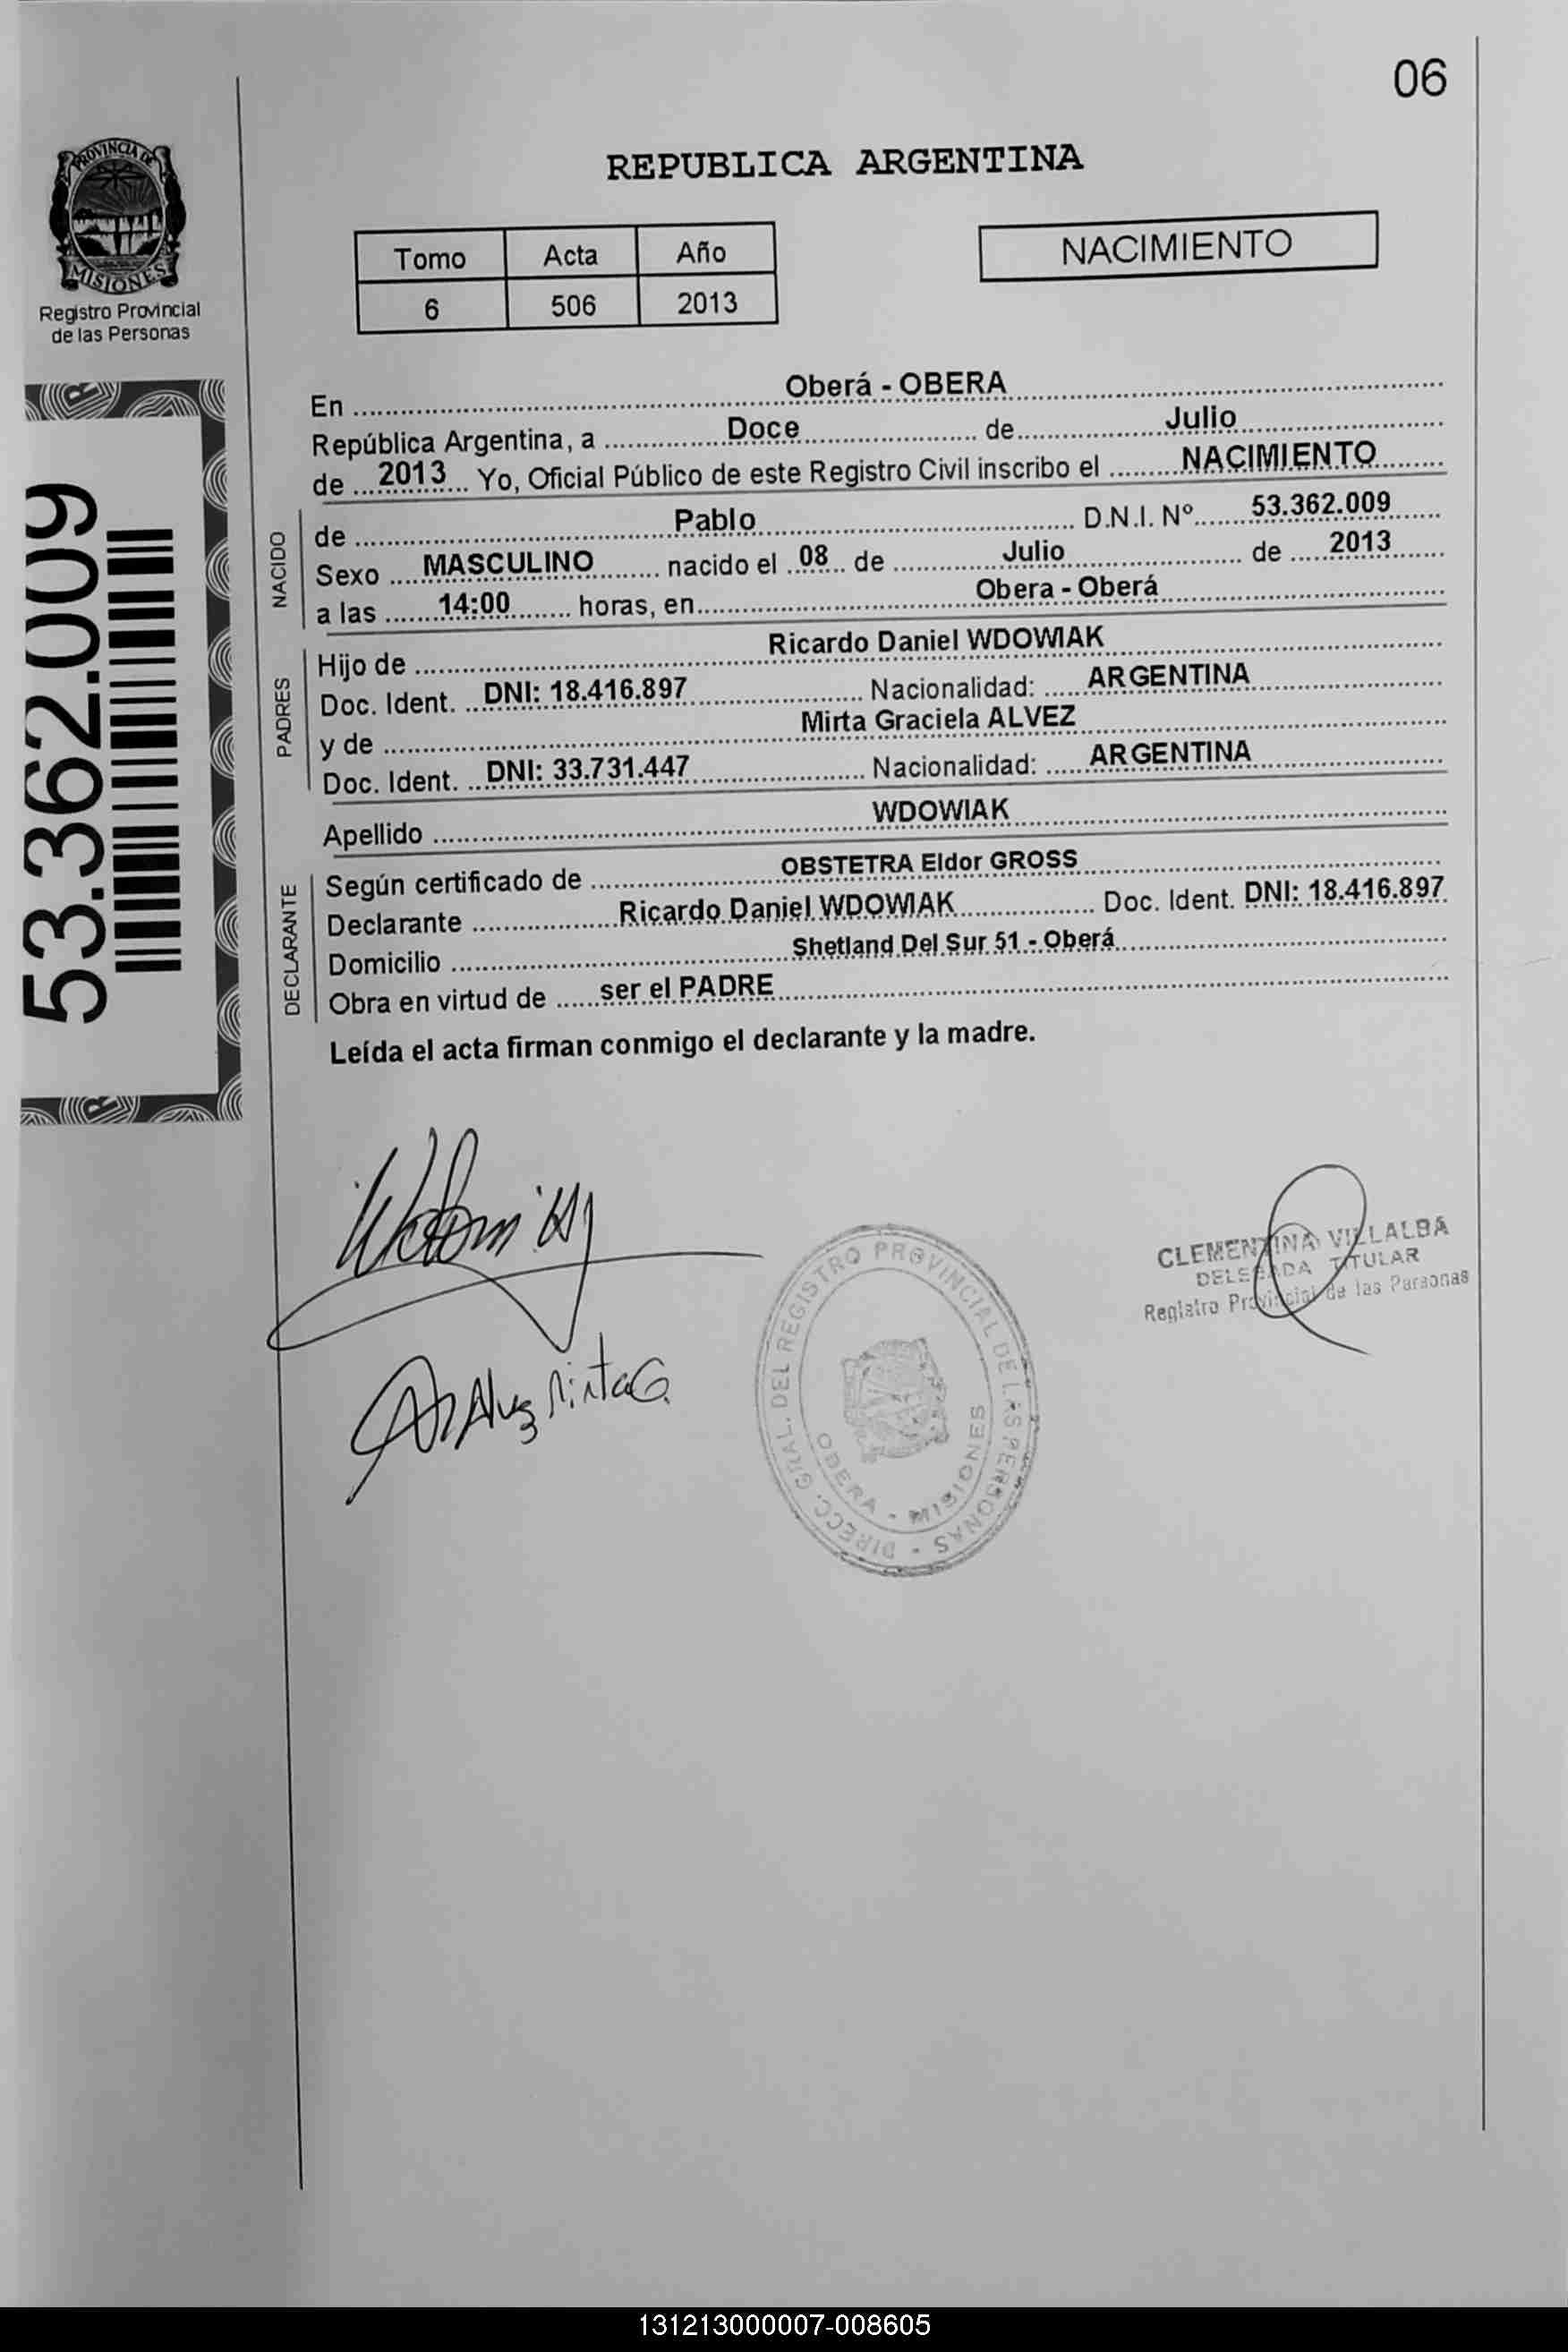 06
PROVINCIA DE
MISIONES
Registro Provincial
de las Personas
53.362.009
REPUBLICA ARGENTINA
Tomo Acta Año
6 506 2013
NACIMIENTO
En Oberá - OBERA
República Argentina, a Doce de Julio
de 2013 Yo, Oficial Público de este Registro Civil inscribo el NACIMIENTO
NACIDO
de Pablo D.N.I. Nº 53.362.009
Sexo MASCULINO nacido el 08 de Julio de 2013
a las 14:00 horas, en Obera - Oberá
PADRES
Hijo de Ricardo Daniel WDOWIAK
Doc. Ident. DNI: 18.416.897 Nacionalidad: ARGENTINA
y de Mirta Graciela ALVEZ
Doc. Ident. DNI: 33.731.447 Nacionalidad: ARGENTINA
Apellido WDOWIAK
DECLARANTE
Según certificado de OBSTETRA Eldor GROSS
Declarante Ricardo Daniel WDOWIAK Doc. Ident. DNI: 18.416.897
Domicilio Shetland Del Sur 51 - Oberá
Obra en virtud de ser el PADRE
Leída el acta firman conmigo el declarante y la madre.
CLEMENTINA VILLALBA
DELEGADA TITULAR
Registro Provincial de las Personas
DIRECC. GRAL. DEL REGISTRO PROVINCIAL DE LAS PERSONAS -
OBERA - MISIONES
131213000007-008605